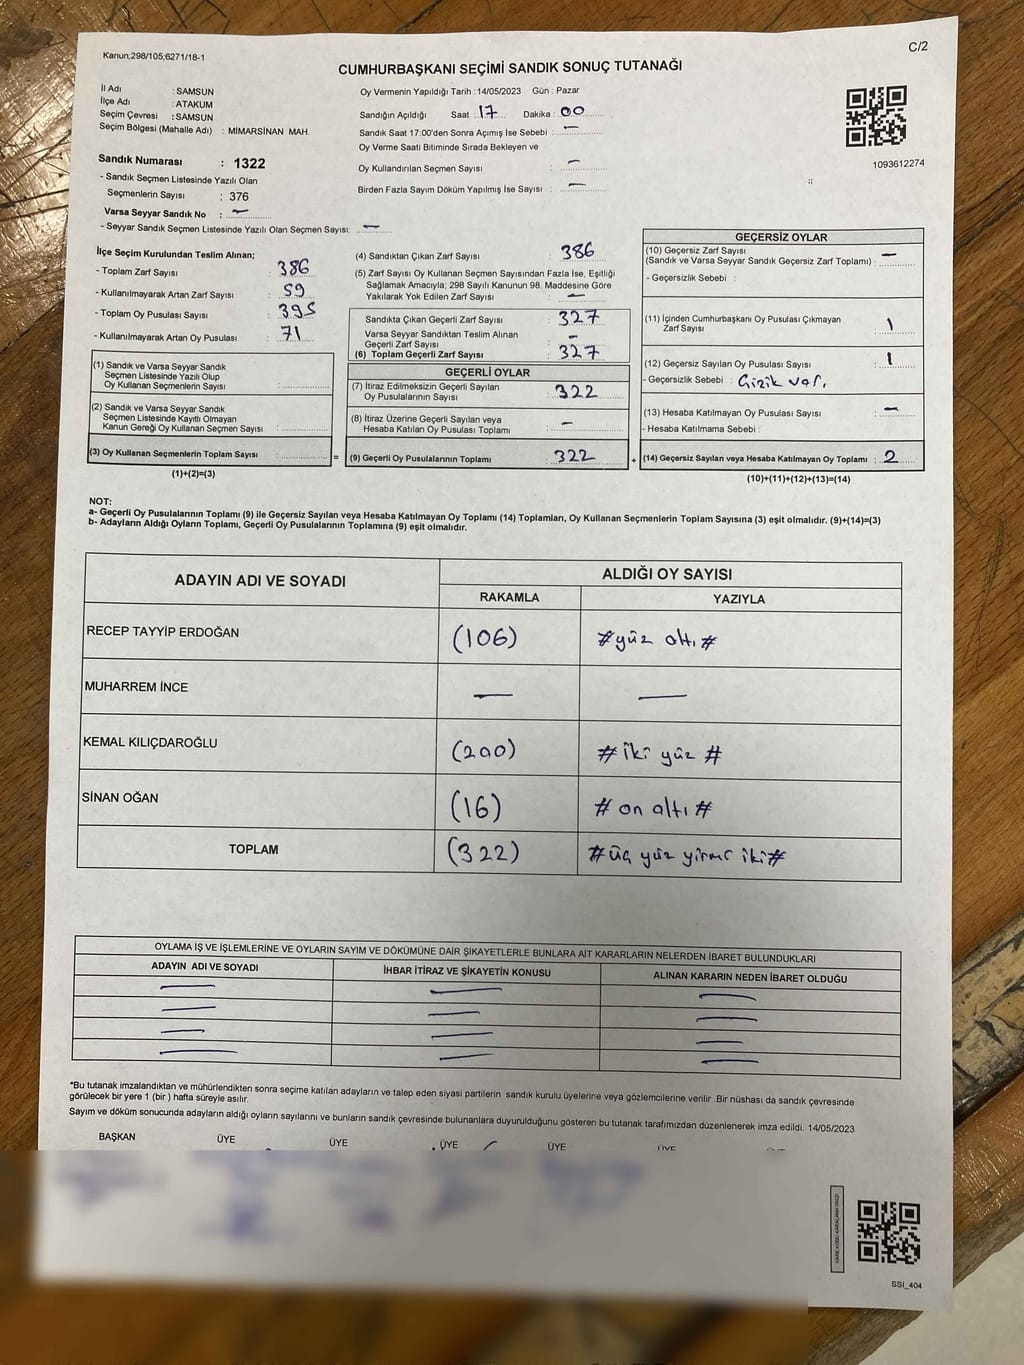 Kanun;298/105;6271/18-1
C/2
CUMHURBAŞKANI SEÇİMİ SANDIK SONUÇ TUTANAĞI
İl Adı : SAMSUN
İlçe Adı : ATAKUM
Seçim Çevresi : SAMSUN
Seçim Bölgesi (Mahalle Adı) : MİMARSİNAN MAH.
Sandık Numarası : 1322
- Sandık Seçmen Listesinde Yazılı Olan
Seçmenlerin Sayısı : 376
Varsa Seyyar Sandık No : —
- Seyyar Sandık Seçmen Listesinde Yazılı Olan Seçmen Sayısı: —
Oy Vermenin Yapıldığı Tarih : 14/05/2023 Gün : Pazar
Sandığın Açıldığı Saat : 17 Dakika : 00
Sandık Saat 17:00'den Sonra Açımış İse Sebebi : —
Oy Verme Saati Bitiminde Sırada Bekleyen ve
Oy Kullandırılan Seçmen Sayısı : —
Birden Fazla Sayım Döküm Yapılmış İse Sayısı : —
1093612274
İlçe Seçim Kurulundan Teslim Alınan;
- Toplam Zarf Sayısı : 386
- Kullanılmayarak Artan Zarf Sayısı : 59
- Toplam Oy Pusulası Sayısı : 395
- Kullanılmayarak Artan Oy Pusulası : 71
(1) Sandık ve Varsa Seyyar Sandık
Seçmen Listesinde Yazılı Olup
Oy Kullanan Seçmenlerin Sayısı :
(2) Sandık ve Varsa Seyyar Sandık
Seçmen Listesinde Kayıtlı Olmayan
Kanun Gereği Oy Kullanan Seçmen Sayısı :
(3) Oy Kullanan Seçmenlerin Toplam Sayısı :
(1)+(2)=(3)
(4) Sandıktan Çıkan Zarf Sayısı : 386
(5) Zarf Sayısı Oy Kullanan Seçmen Sayısından Fazla İse, Eşitliği
Sağlamak Amacıyla; 298 Sayılı Kanunun 98. Maddesine Göre
Yakılarak Yok Edilen Zarf Sayısı : —
Sandıkta Çıkan Geçerli Zarf Sayısı : 327
Varsa Seyyar Sandıktan Teslim Alınan
Geçerli Zarf Sayısı : —
(6) Toplam Geçerli Zarf Sayısı : 327
GEÇERLİ OYLAR
(7) İtiraz Edilmeksizin Geçerli Sayılan
Oy Pusulalarının Sayısı : 322
(8) İtiraz Üzerine Geçerli Sayılan veya
Hesaba Katılan Oy Pusulası Toplamı : —
= (9) Geçerli Oy Pusulalarının Toplamı : 322
GEÇERSİZ OYLAR
(10) Geçersiz Zarf Sayısı
(Sandık ve Varsa Seyyar Sandık Geçersiz Zarf Toplamı) : —
- Geçersizlik Sebebi :
(11) İçinden Cumhurbaşkanı Oy Pusulası Çıkmayan
Zarf Sayısı : 1
(12) Geçersiz Sayılan Oy Pusulası Sayısı : 1
- Geçersizlik Sebebi : Çizik var.
(13) Hesaba Katılmayan Oy Pusulası Sayısı : —
- Hesaba Katılmama Sebebi :
+ (14) Geçersiz Sayılan veya Hesaba Katılmayan Oy Toplamı : 2
(10)+(11)+(12)+(13)=(14)
NOT:
a- Geçerli Oy Pusulalarının Toplamı (9) ile Geçersiz Sayılan veya Hesaba Katılmayan Oy Toplamı (14) Toplamları, Oy Kullanan Seçmenlerin Toplam Sayısına (3) eşit olmalıdır. (9)+(14)=(3)
b- Adayların Aldığı Oyların Toplamı, Geçerli Oy Pusulalarının Toplamına (9) eşit olmalıdır.
ADAYIN ADI VE SOYADI
ALDIĞI OY SAYISI
RAKAMLA YAZIYLA
RECEP TAYYİP ERDOĞAN (106) #yüz altı#
MUHARREM İNCE — —
KEMAL KILIÇDAROĞLU (200) #iki yüz#
SİNAN OĞAN (16) #on altı#
TOPLAM (322) #üç yüz yirmi iki#
OYLAMA İŞ VE İŞLEMLERİNE VE OYLARIN SAYIM VE DÖKÜMÜNE DAİR ŞİKAYETLERLE BUNLARA AİT KARARLARIN NELERDEN İBARET BULUNDUKLARI
ADAYIN ADI VE SOYADI İHBAR İTİRAZ VE ŞİKAYETİN KONUSU ALINAN KARARIN NEDEN İBARET OLDUĞU
— — —
— — —
— — —
— — —
*Bu tutanak imzalandıktan ve mühürlendikten sonra seçime katılan adayların ve talep eden siyasi partilerin sandık kurulu üyelerine veya gözlemcilerine verilir .Bir nüshası da sandık çevresinde
görülecek bir yere 1 (bir ) hafta süreyle asılır.
Sayım ve döküm sonucunda adayların aldığı oyların sayılarını ve bunların sandık çevresinde bulunanlara duyurulduğunu gösteren bu tutanak tarafımızdan düzenlenerek imza edildi. 14/05/2023
BAŞKAN ÜYE ÜYE ÜYE ÜYE ÜYE
SSI_404